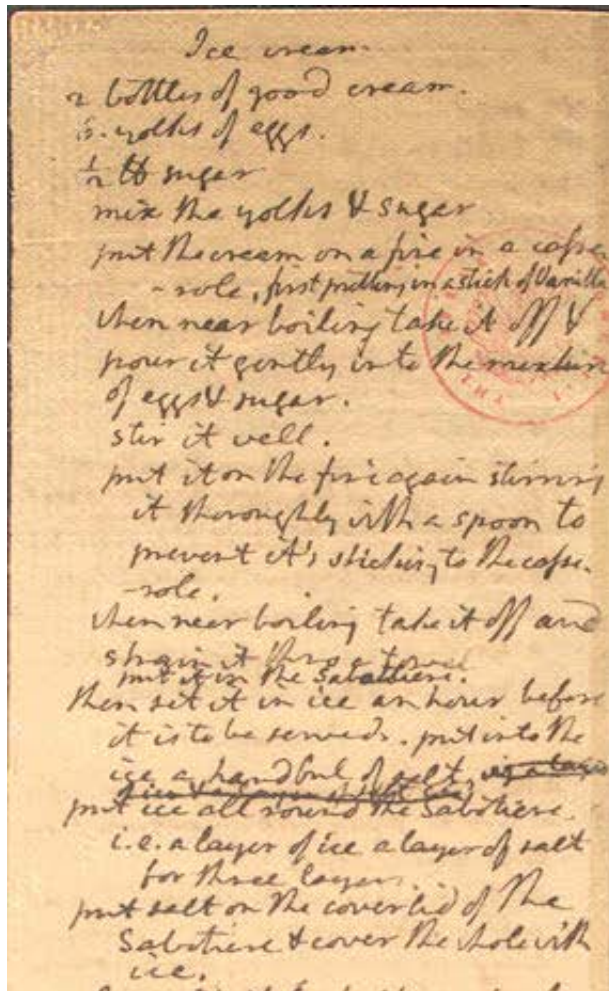 Ice cream.
2 bottles of good cream.
6. yolks of eggs.
1/2 lb sugar
mix the yolks & sugar
put the cream on a fire in a casse
- role, first putting in a stick of Vanilla.
when near boiling take it off &
pour it gently into the mixture
of eggs & sugar.
stir it well.
put it on the fire again stirring
it thoroughly with a spoon to
prevent it's sticking to the casse-
-role.
when near boiling take it off and
strain it thro' a towel.
put it in the Sabottiere.
then set it in ice an hour before
it is to be served. put into the
ice a handful of salt.
put ice all round the Sabotiere
i.e. a layer of ice a layer of salt
for three layers.
put salt on the coverlid of the
Sabotiere & cover the whole with
ice.